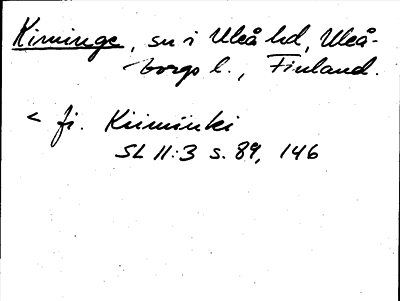 Kiminge, sn i Uleå hd, Uleå-
borgs l., Finland.
< fi. Kiiminki
SL II:3 s. 89, 146